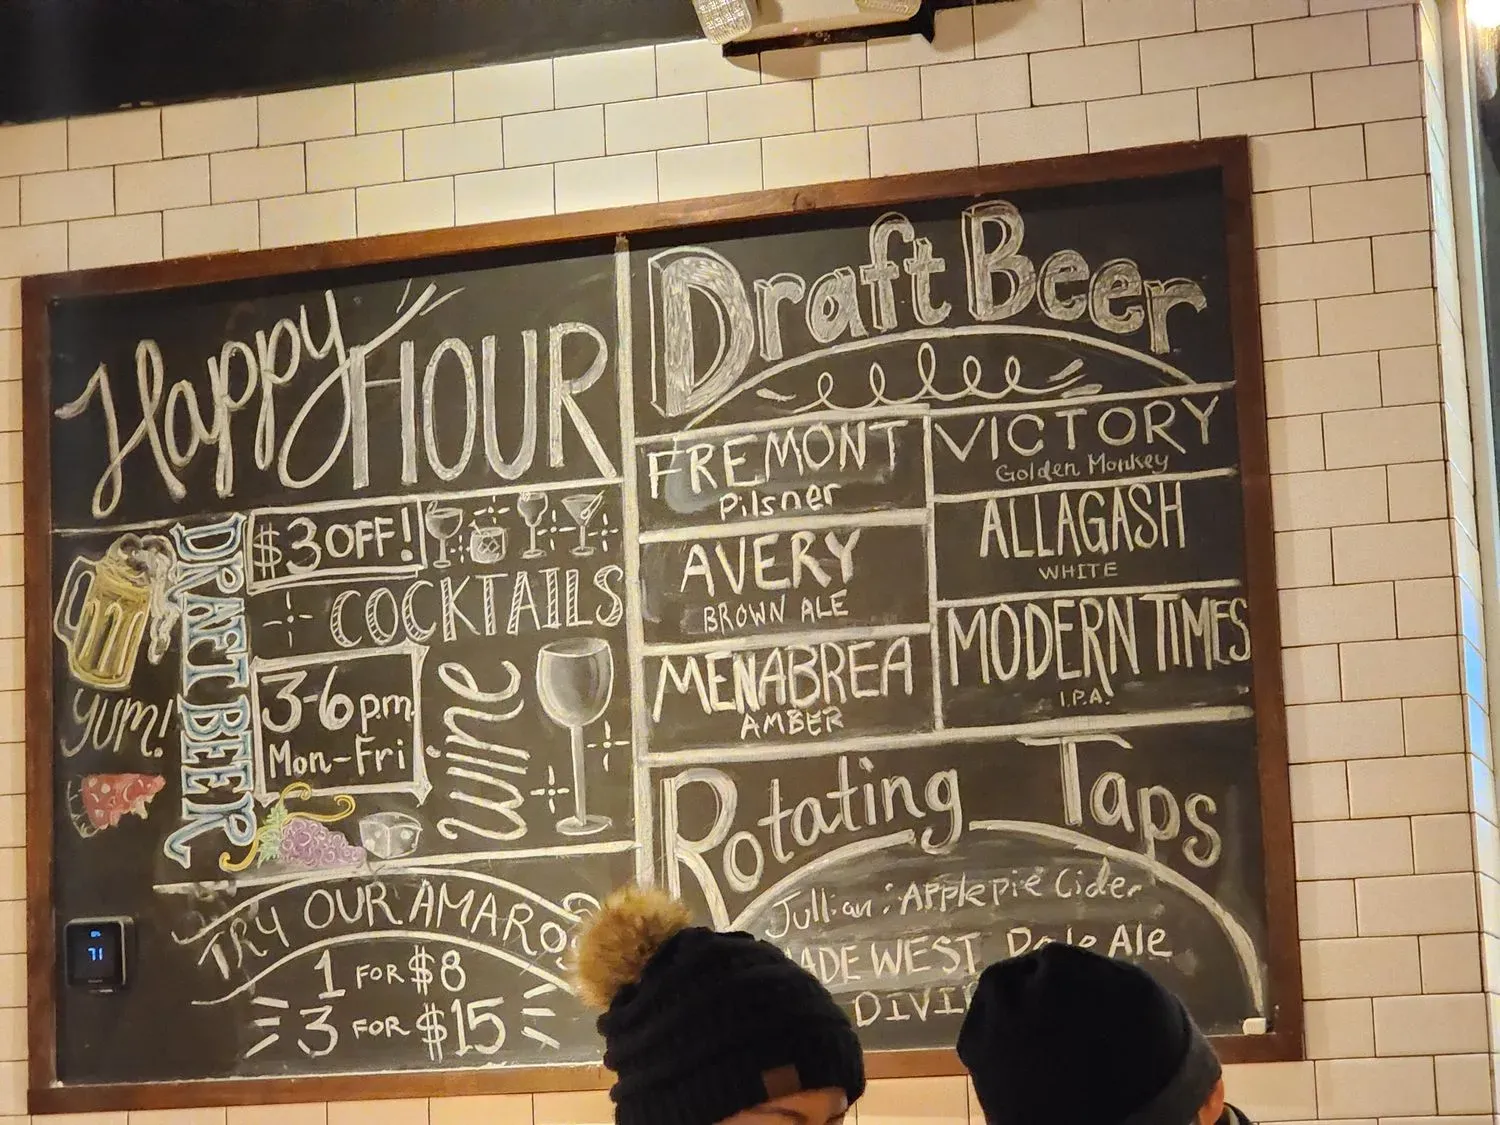 Happy HOUR
$3 OFF!
DRAFT BEER
COCKTAILS
3-6 pm
Mon-Fri
wine
yum!
TRY OUR AMAROS
1 FOR $8
3 FOR $15
71
Draft Beer
FREMONT
Pilsner
AVERY
BROWN ALE
MENABREA
AMBER
VICTORY
Golden Monkey
ALLAGASH
WHITE
MODERN TIMES
I.P.A.
Rotating Taps
Jullian: Applepie Cider
WEST Pale Ale